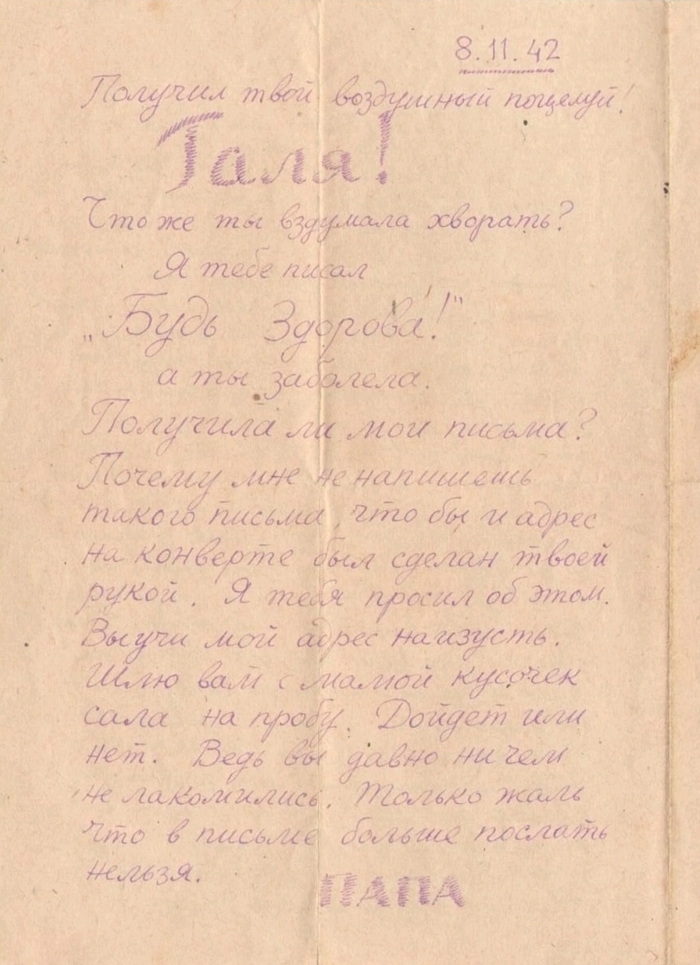 8.11.42
Получил твой воздушный поцелуй!
Галя!
Что же ты вздумала хворать?
Я тебе писал
„Будь Здорова!"
а ты заболела.
Получила ли мои письма?
Почему мне не напишешь
такого письма, что бы и адрес
на конверте был сделан твоей
рукой. Я тебя просил об этом.
Выучи мой адрес наизусть.
Шлю вам с мамой кусочек
сала на пробу. Дойдет или
нет. Ведь вы давно ни чем
не лакомились. Только жаль
что в письме больше послать
нельзя.
ПАПА